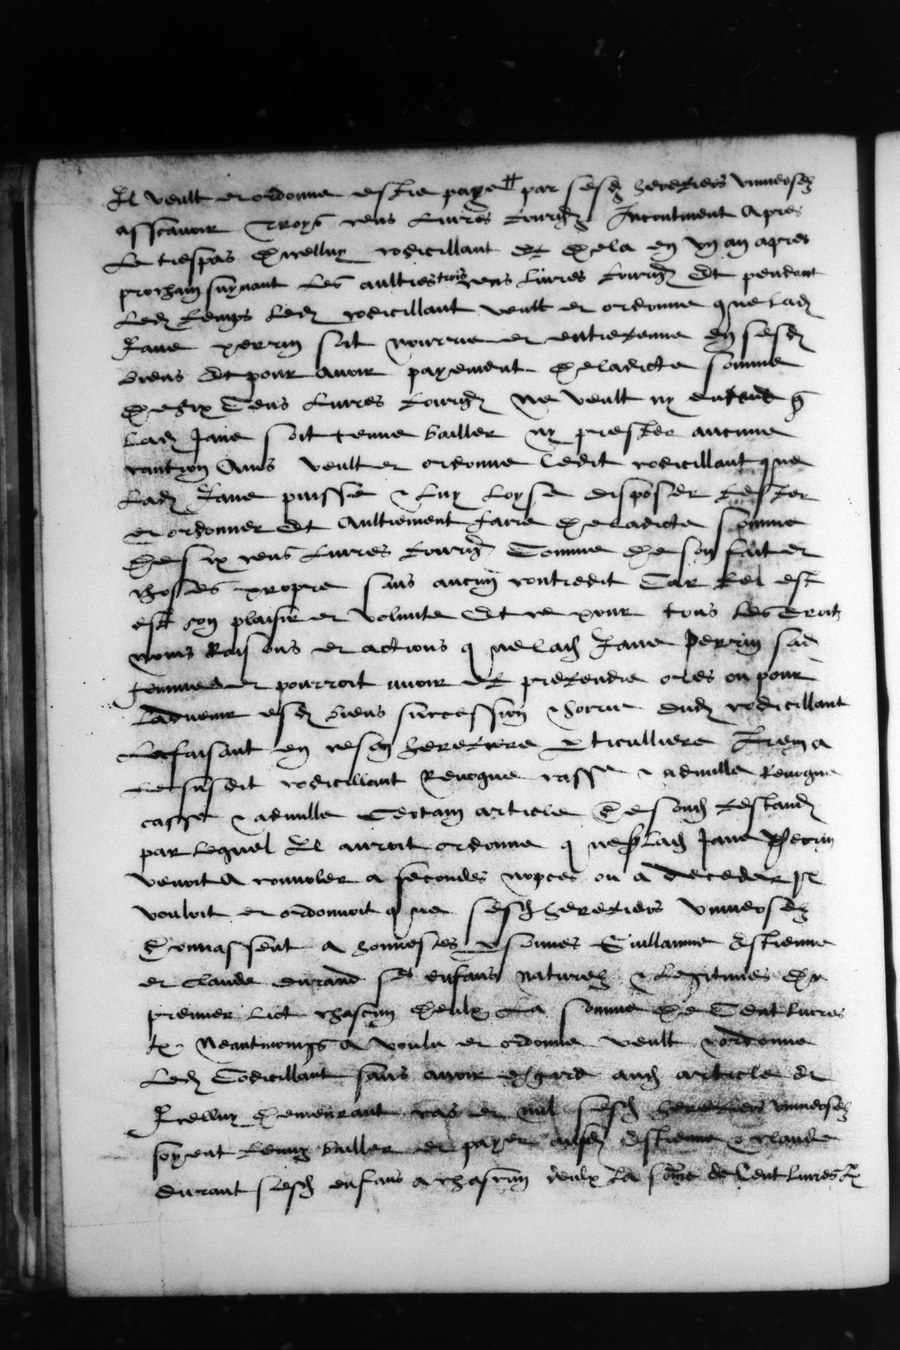 Il veult et ordonne estre paye par sesd heretiers universelz
asscavoir Troys cens Livres tourn Incontinent Apres
Le trespas d'icelluy codicillant et de la en ung an apres
prochain suyvant Les aultres trois cens Livres tourn Et pendant
Led temps Led codicillant veult et ordonne que lad
Jane perrin soit nourrie et entretenue en sesd
biens Et pour avoir payement de ladicte somme
de six Cens Livres tourn Ne veult ny entend q
Lad Jane soit tenue bailler ny prester aucune
caution Ains veult et ordonne Ledit codicillant que
Lad Jane puisse & Luy Loyse disposer tester
et ordonner Et Aultrement faire de ladicte somme
de six cens Livres tourn Comme de son fait et
choses propre sans aucun contredit Car tel est
est son plaisir et volunte Et ce pour tous Les droitz
noms Raisons et actions que lad Jane Perrin sad
femme et pourroit avoir et pretendre ores ou pour
Ladvenir esd biens succession dud codicillant
Le faisant en ce son heretiere particulliere Item a
Le susdit codicillant Revoque casse & adnulle Revoque
casse & adnulle Certain article de sond testand
par Lequel Il auroit ordonne que sy Lad Jane Perrin
venoit A convoler a secondes nopces ou a deceder Il
vouloit et ordonnoit que sesd heretiers universelz
donnassent a honnestes personnes Guillaume Estienne
et Claude durand ses enfans naturelz & Legitimes du
premier Lict chascun deulx La somme de Cent Livres
tz Neantmoings A voulu et ordonne veult & ordonne
Led Codicillant sans avoir esgard aud article Et
Icelluy demeurant cas et nul sesd heretiers universelz
soyent tenuz bailler et payer ausd Estienne & Claude
durant sesd enfans a chascun deulx La some de Cent Livres tz